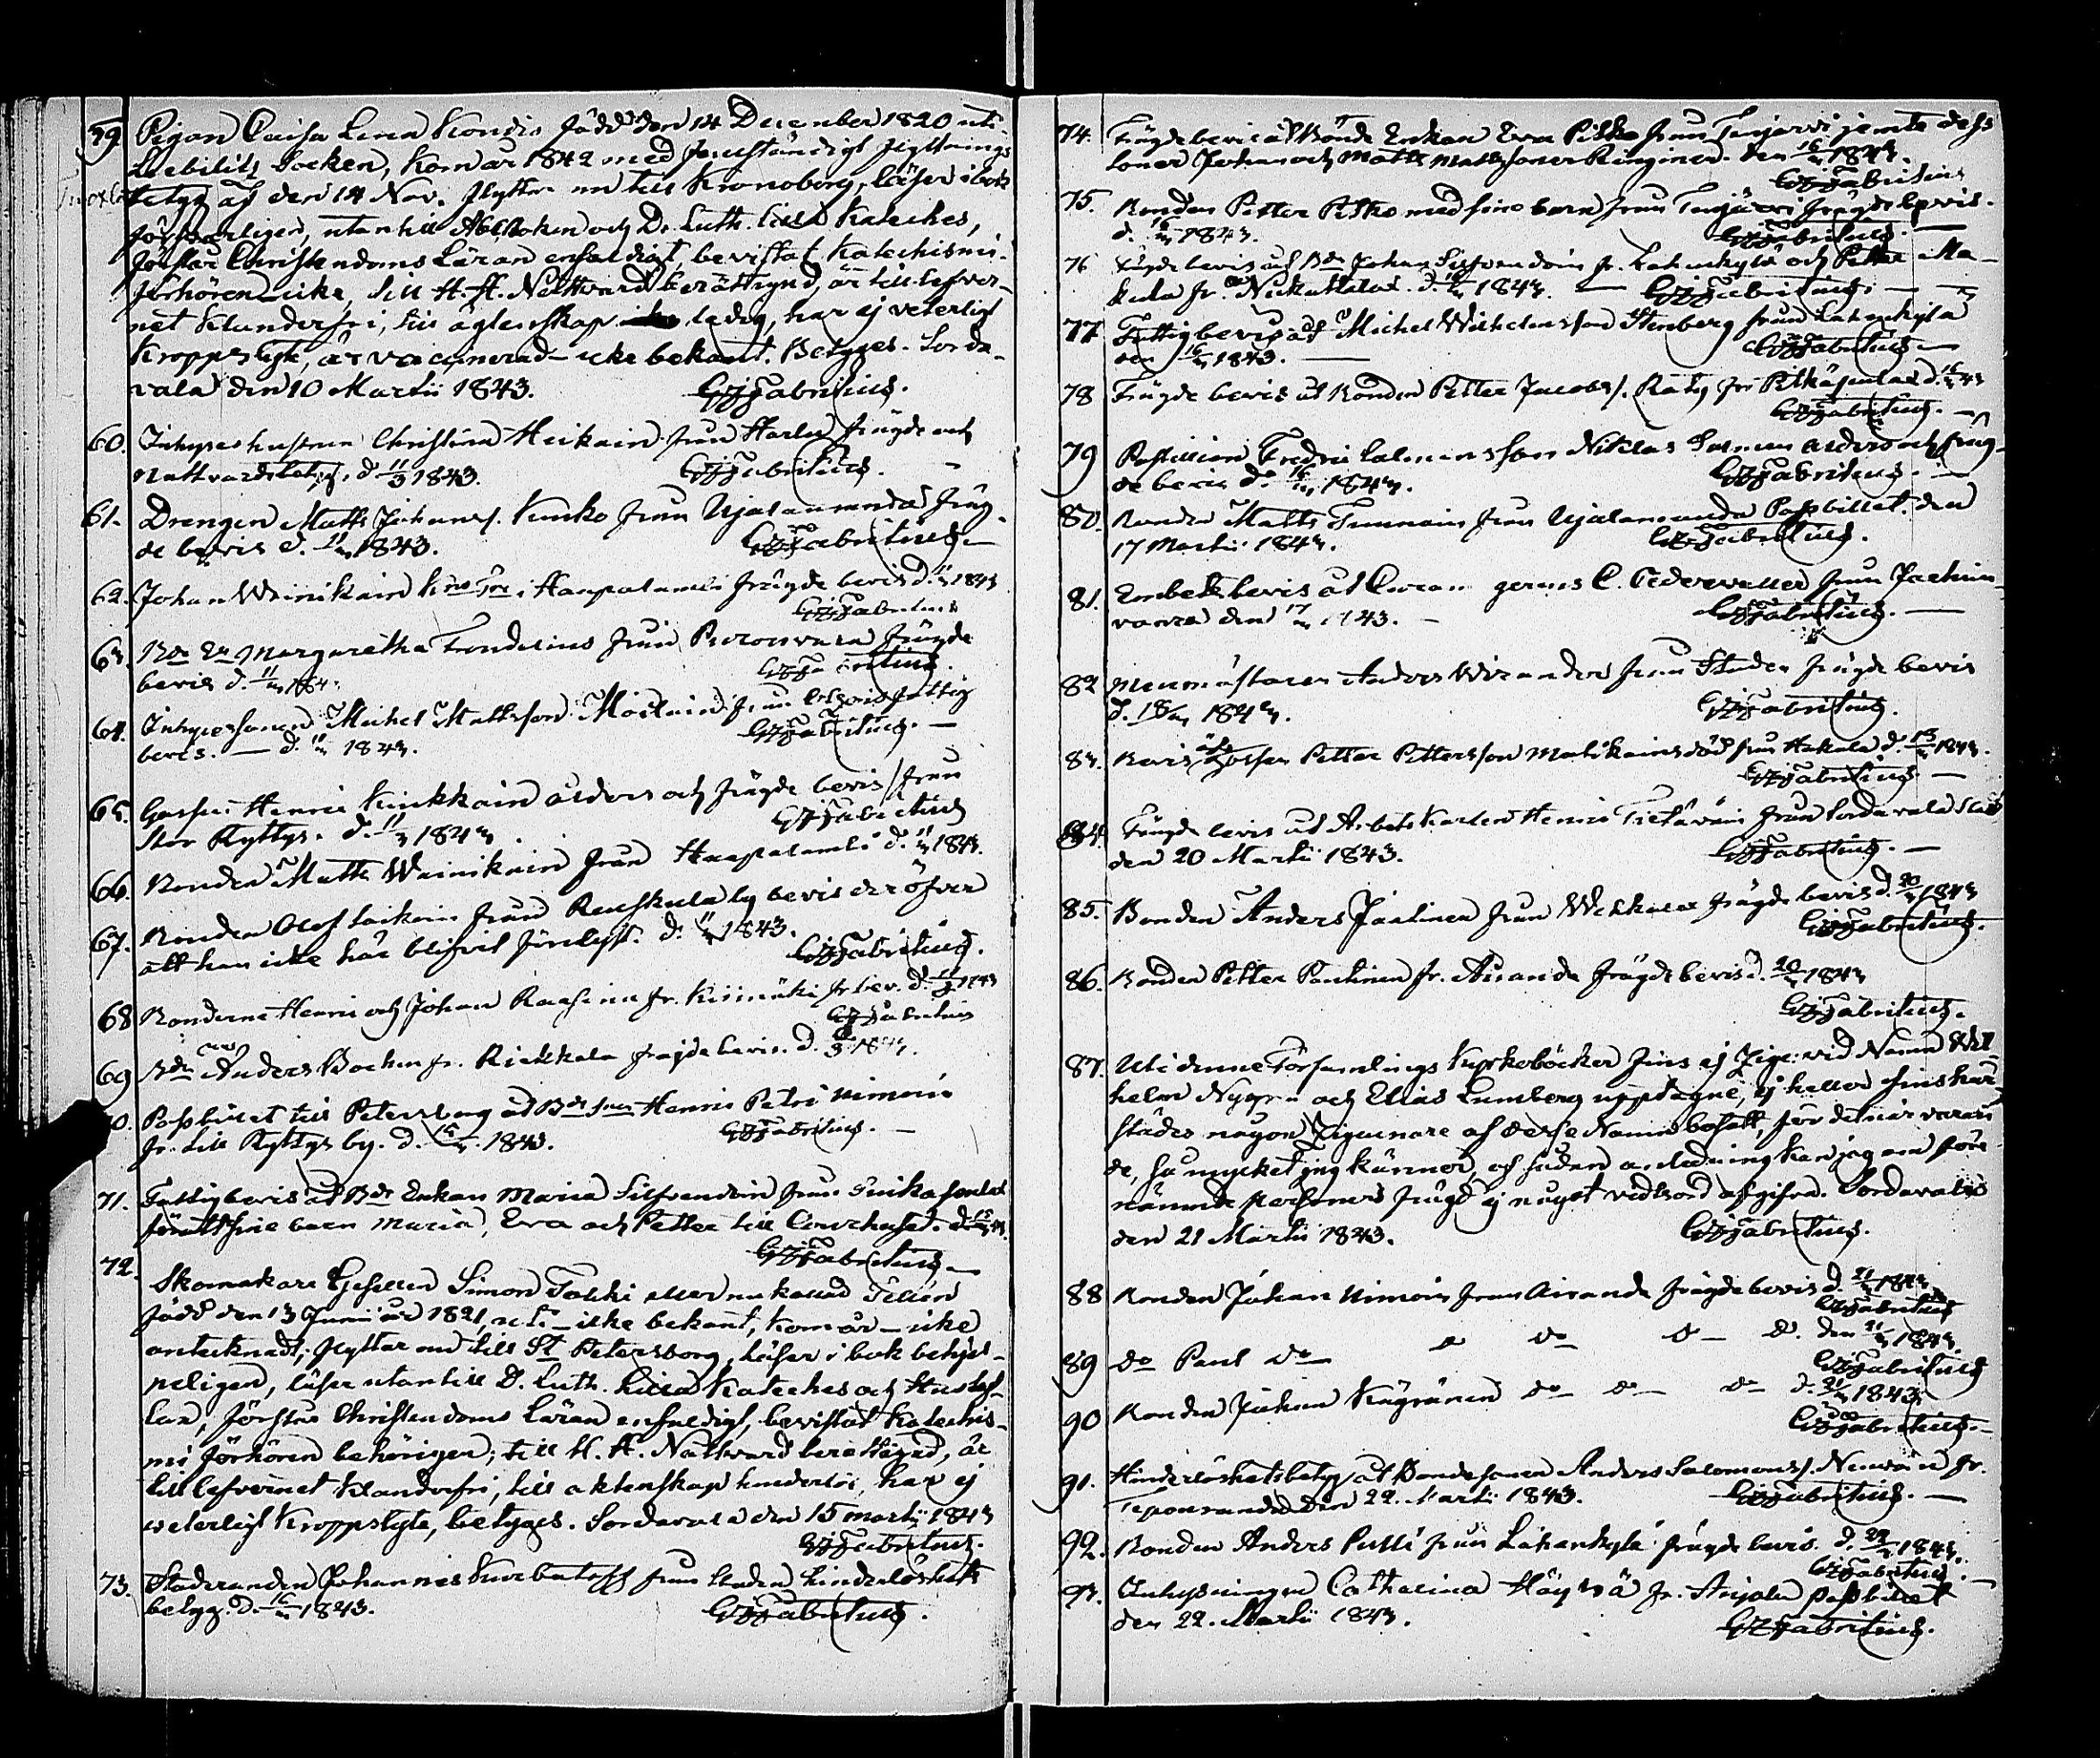 59. Pigan Caisa Lena Kondis född den 14 December 1820 uti
Liebelitz Socken, kom år 1842 med fullständigt flyttnings
betyg af den 14 Nov. flyttar nu till Kronoborg, läser i bok
försvarligen, utantill Abcboken och D. Luth. lilla Kateches,
förstår Christendoms Läran enfaldigt, bevistat Katechismi-
förhören icke, till H. H. Nattvard berättigad, är till lefver-
net klanderfri, till ägtenskap ledig, har ej veterligt
kroppslyte, är vaccinerad icke bekant. Betygas. Sorda-
vala den 10 Martii 1843. GJFabritius.
60. Inhyseshustrun Christina Heikain från Harlu frägde och
Nattvardsbetyg, d. 11/3 1843. GJFabritius.
61. Drengen Matts Johanss. Kunko från Ujalanranda fräg-
de bevis d. 11/3 1843. GJFabritius.
62. Johan Wainikain i Haapalambi frägde bevis d. 11/3 1843
GJFabritius
63. Margaretha Fonderius från frägde
bevis d. 11/3 184 GJFabritius.
64. Inhysessonen Michel Mattsson från fattig
bevis. — d. 11/3 1843. GJFabritius. —
65. Henric Kinkkain ålders och frägde bevis från
Stor Ryttys. d. 11/3 1843. GJFabritius
66. Bonden Matts Wainikain från Haapalambi d. 11/3 1843.
67. Bonden Olof Laikain från Reuskula by bevis der öfver
att han icke här blifvit förlyst. d. 11/3 1843. GJFabritius.
68 Bönderne Henric och Johan från Kiimäki fr. bev. d. 11/3 1843
GJFabritius
69 Anders Bochm fr. Riekkala frägde bevis. d. 1843.
70. Passbillet till Petersborg åt Henric Petri Nimoin
fr. Lill Ryttys by. d. 15/3 1843. GJFabritius. —
71. Fattigbevis åt Enkan Maria Silfvendoin från
samt sine barn Maria, Eva och Petter till Courhuset. d. 15/3 43
GJFabritius
72. Skomakare Gesellen Simon Tolki eller nu kallad Tellen
född den 13 Junii år 1821, uti — icke bekant, kom år — icke
antecknadt; flyttar nu till St Petersborg, läser i bok behjel-
peligen, läser utantill D. Luth. lilla Kateches och Hustaf-
lan, förstår Christendoms Läran enfaldigt, bevistat Katechis-
mi förhören behörigen; till H. H. Nattvard berättigad, är
till lefvernet klanderfri, till äktenskap hinderlös, har ej
veterligt kroppslyte, betygas. Sordavala den 15 Martii 1843
GJFabritius.
73. Johannes Kurbatoff från Staden hinderlöshets
betyg. d. 16/3 1843. GJFabritius.
74. Frägdebevis åt Bonde Enkan Eva Pitko från Tuujärvi jemte dess
Söner Johan och Matts Mattssöner Ringinen. den 16/3 1843.
GJFabritius
75. Bonden Petter Pitko med sine barn från Tuujärvi frägdebevis.
d. 16/3 1843. GJFabritius. —
76 Frägdebevis åt Johan Silfvendoin fr. Lahenkylä och Petter Ma-
kula fr. d. 16/3 1843. — GJFabritius. —
77 Fattigbevis åt Michel Wilhelmsson Stenberg från Lahenkylä
den 16/3 1843. — GJFabritius —
78 Frägde bevis åt Bonden Petter Jacobss. Räty fr. d. 16/3 43
GJFabritius. —
79 Postillion Fredric Calmanssons Niklas Calman ålders och fräg-
de bevis d. 16/3 1843. GJFabritius. —
80. Bonden Matts Tummain från Ujalanranda Passbillet. den
17 Martii 1843. GJFabritius.
81. Embets bevis åt C. Cederwaller från Jackim-
vaara den 17/3 1843. — GJFabritius. —
82 Anders Wirander från Staden frägde bevis
d. 18/3 1843. GJFabritius.
83. Bevis Petter Pettersson Matikains död från Hakala d. 1843.
GJFabritius. —
84. Frägde bevis åt Arbets Karlen Henric Tietäväin från Sordavala Stad
den 20 Martii 1843. GJFabritius. —
85. Bonden Anders Partinen från Wekkala frägde bevis d. 20/3 1843
GJFabritius.
86. Bonden Petter Partinen fr. Airanda frägde bevis d. 20/3 1843
GJFabritius.
87. Uti denne Församlings Kyrkoböcker fins ej Zig: vid Namn Wil-
helm Nygren och Elias Lumberg upptagne, ej heller fins här-
städes någon Zigeunare af desse Namn bosatt, för det närvaran-
de, så mycket jag känner, och sådan anledning kan jag om före-
nämnde personers frägd ej något vidtsord afgifva. Sordavala
den 21 Martii 1843. GJFabritius.
88 Bonden Johan Nimoin från Airanda frägde bevis d. 21/3 1843
GJFabritius
89 do Paul do do do do d. den 21/3 1843
GJFabritius
90 Bonden Johan Käyränen do do do d. 21/3 1843
GJFabritius.
91. Hinderlöshetsbetyg åt Bondesonen Anders Salomonss. fr.
den 22. Martii 1843. GJFabritius. —
92. Bonden Anders Pulli från Lahenkylä frägde bevis. d. 22/3 1843.
GJFabritius.
93. Catharina fr. Anjala passbillet
den 22. Martii 1843. GJFabritius.